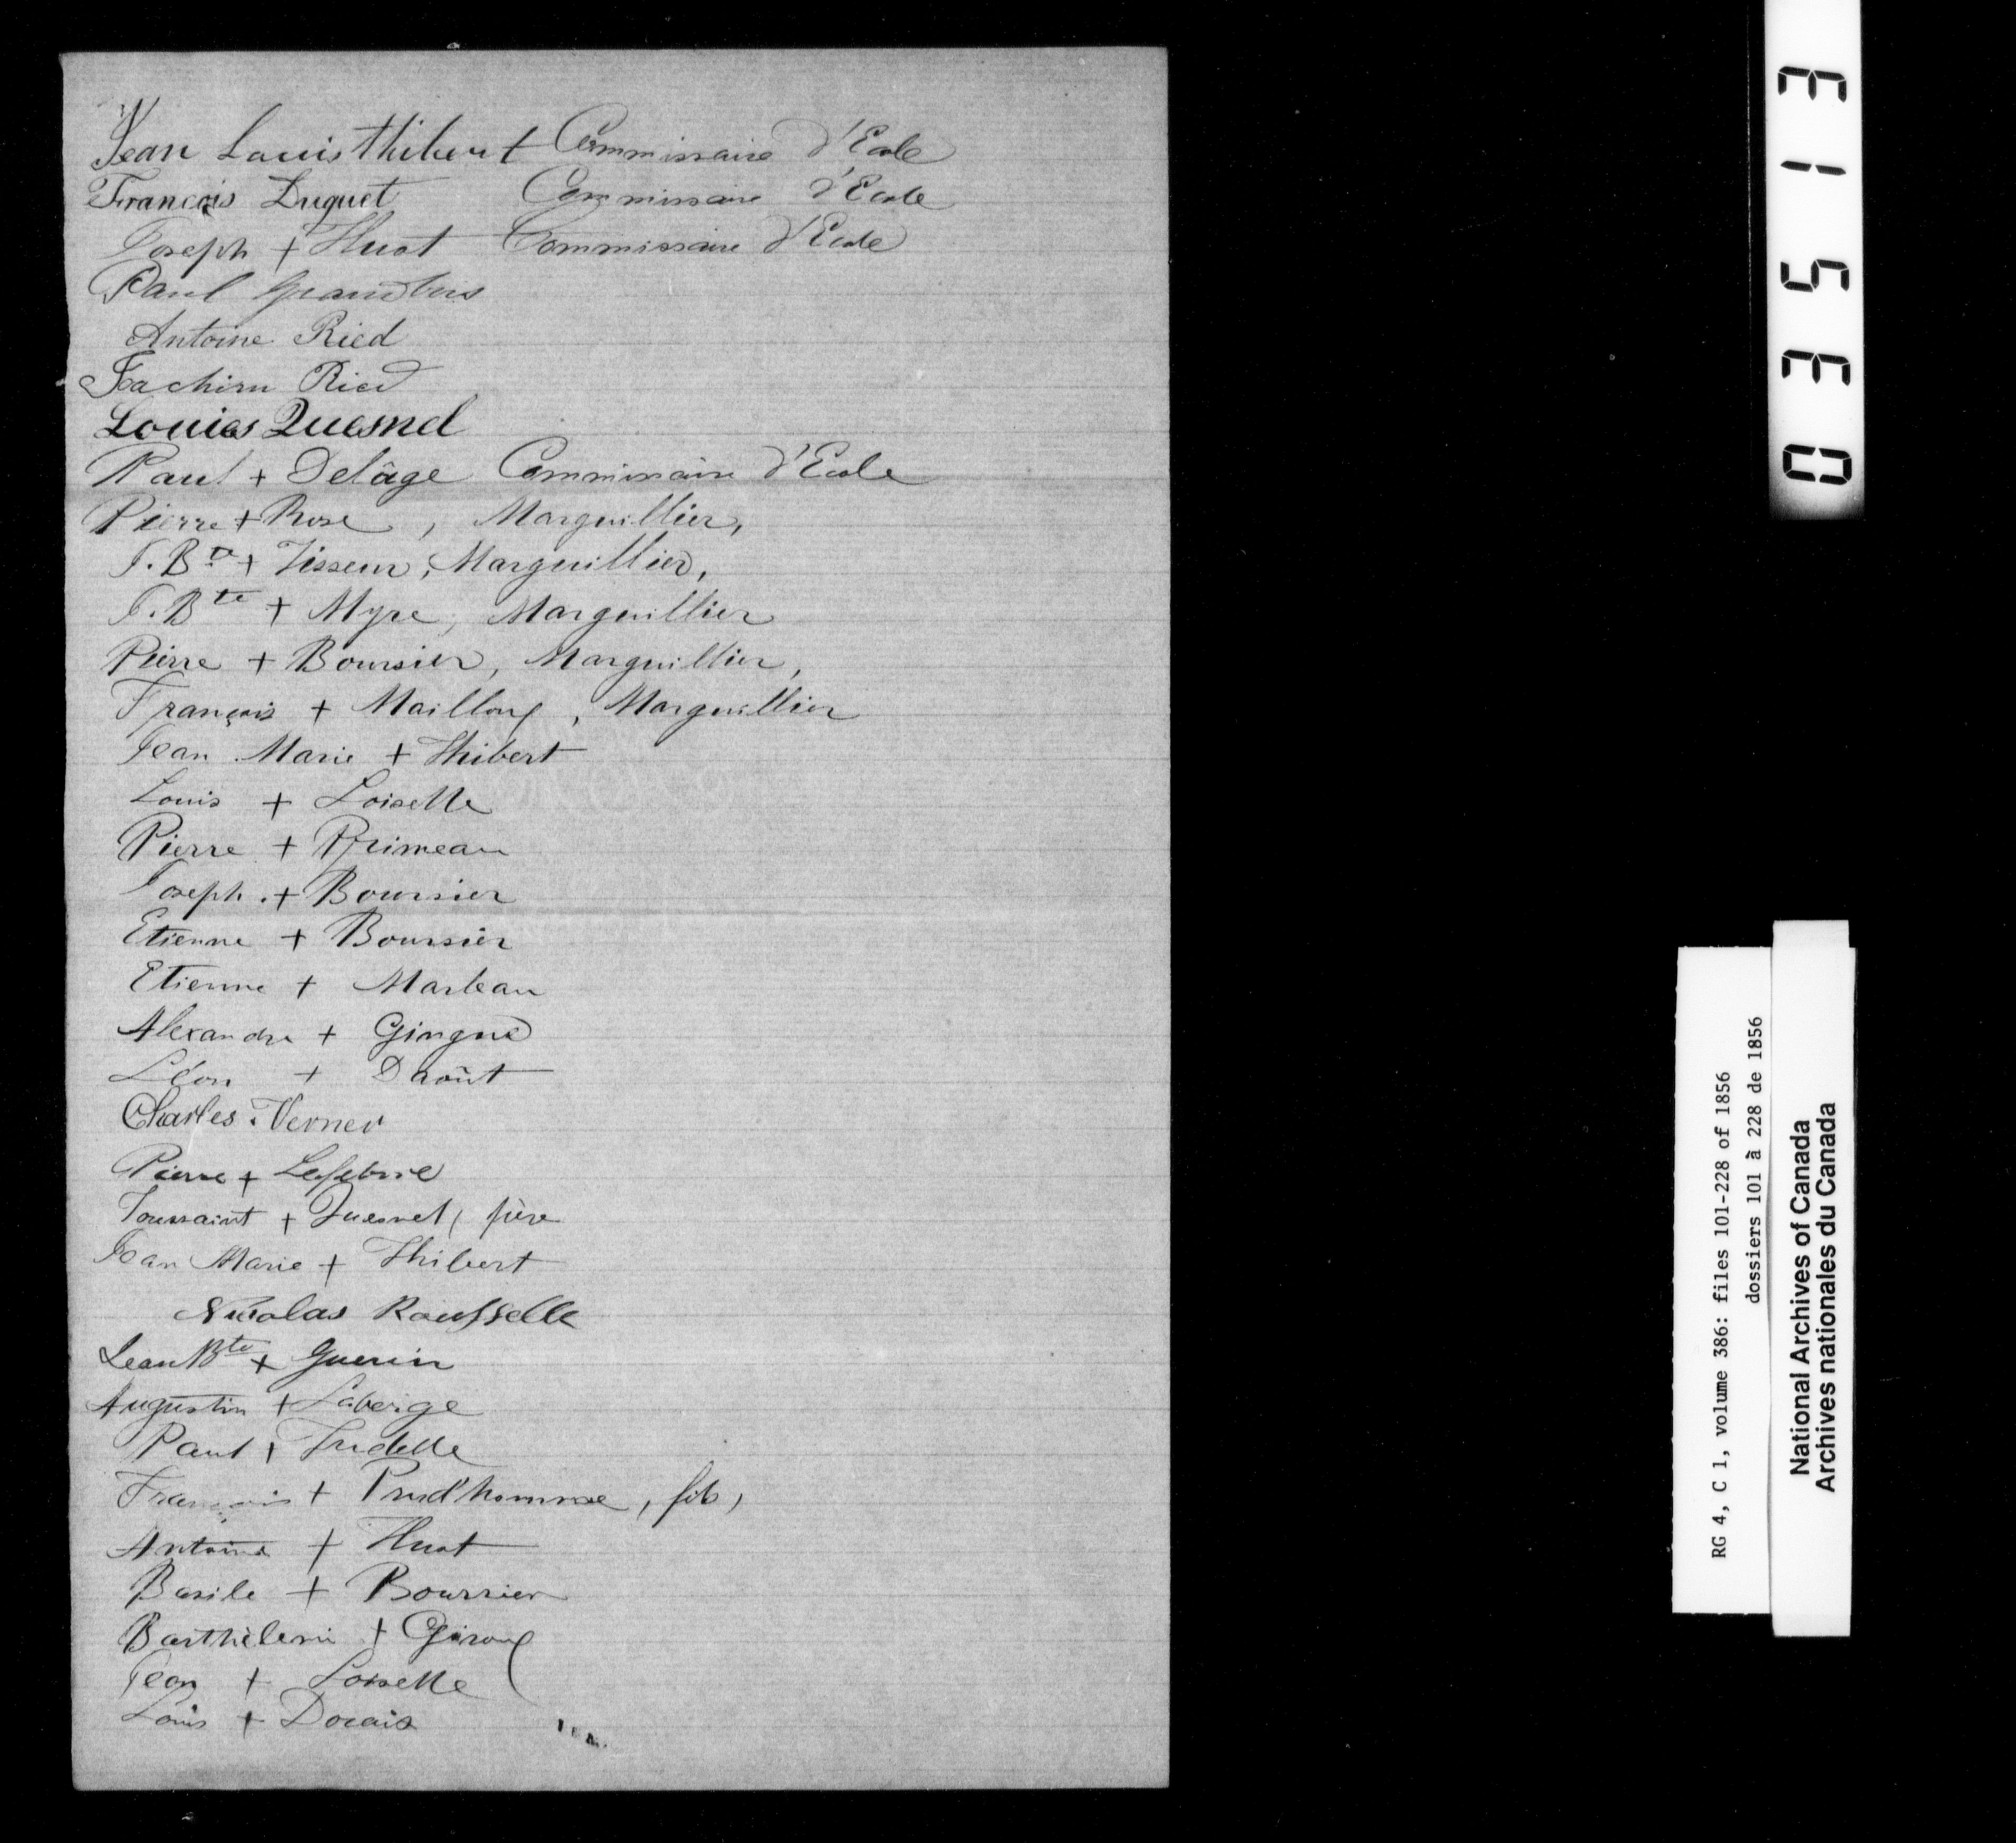 Jean Louis Thibert Commissaire d'Ecole
François Duquet Commissaire d'Ecole
Joseph + Huot Commissaire d'Ecole
Paul Grandbois
Antoine Ried
Joachim Ried
Louis Quesnel
Paul + Delâge Commissaire d'Ecole
Pierre + Rose, Marguillier,
J. Bte + Tisseur, Marguillier,
J. Bte + Myre, Marguillier
Pierre + Boursier, Marguillier,
François + Mailloux, Marguillier
Jean Marie + Thibert
Louis + Loiselle
Pierre + Primeau
Joseph + Boursier
Etienne + Boursier
Etienne + Marleau
Alexandre + Gingue
Léon + Daoût
Charles Verner
Pierre + Lefebvre
Toussaint + Quesnel, père
Jean Marie + Thibert
Nicolas Rousselle
Jean Bte + Guerin
Augustin + Laberge
Paul + Trudelle
François + Prudhomme, fils,
Antoine + Huot
Basile + Boursier
Barthélemi + Giroux
Jean + Loiselle
Louis + Docais
0 3 5 1 3
RG 4, C 1, volume 386: files 101-228 of 1856
dossiers 101 à 228 de 1856
National Archives of Canada
Archives nationales du Canada